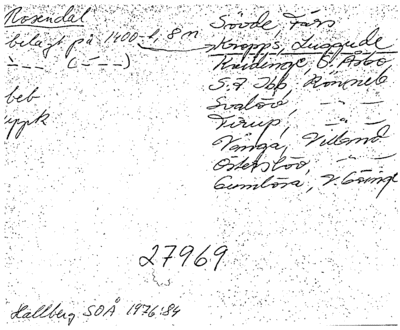 Rosendal
belagt på 1400-t, 8 m
– – – (– – –)
beb
uppk
Sövde, Färs
Kropps, Luggude
Kvidinge, Ö. Åsbo
S:t Ibb, Rönneb
Svalöv, – " –
Tirup, – " –
Vånga, Villand
Österslöv, – " –
Gumlösa, V. Göinge
27969
Hallberg SOÅ 1976:84